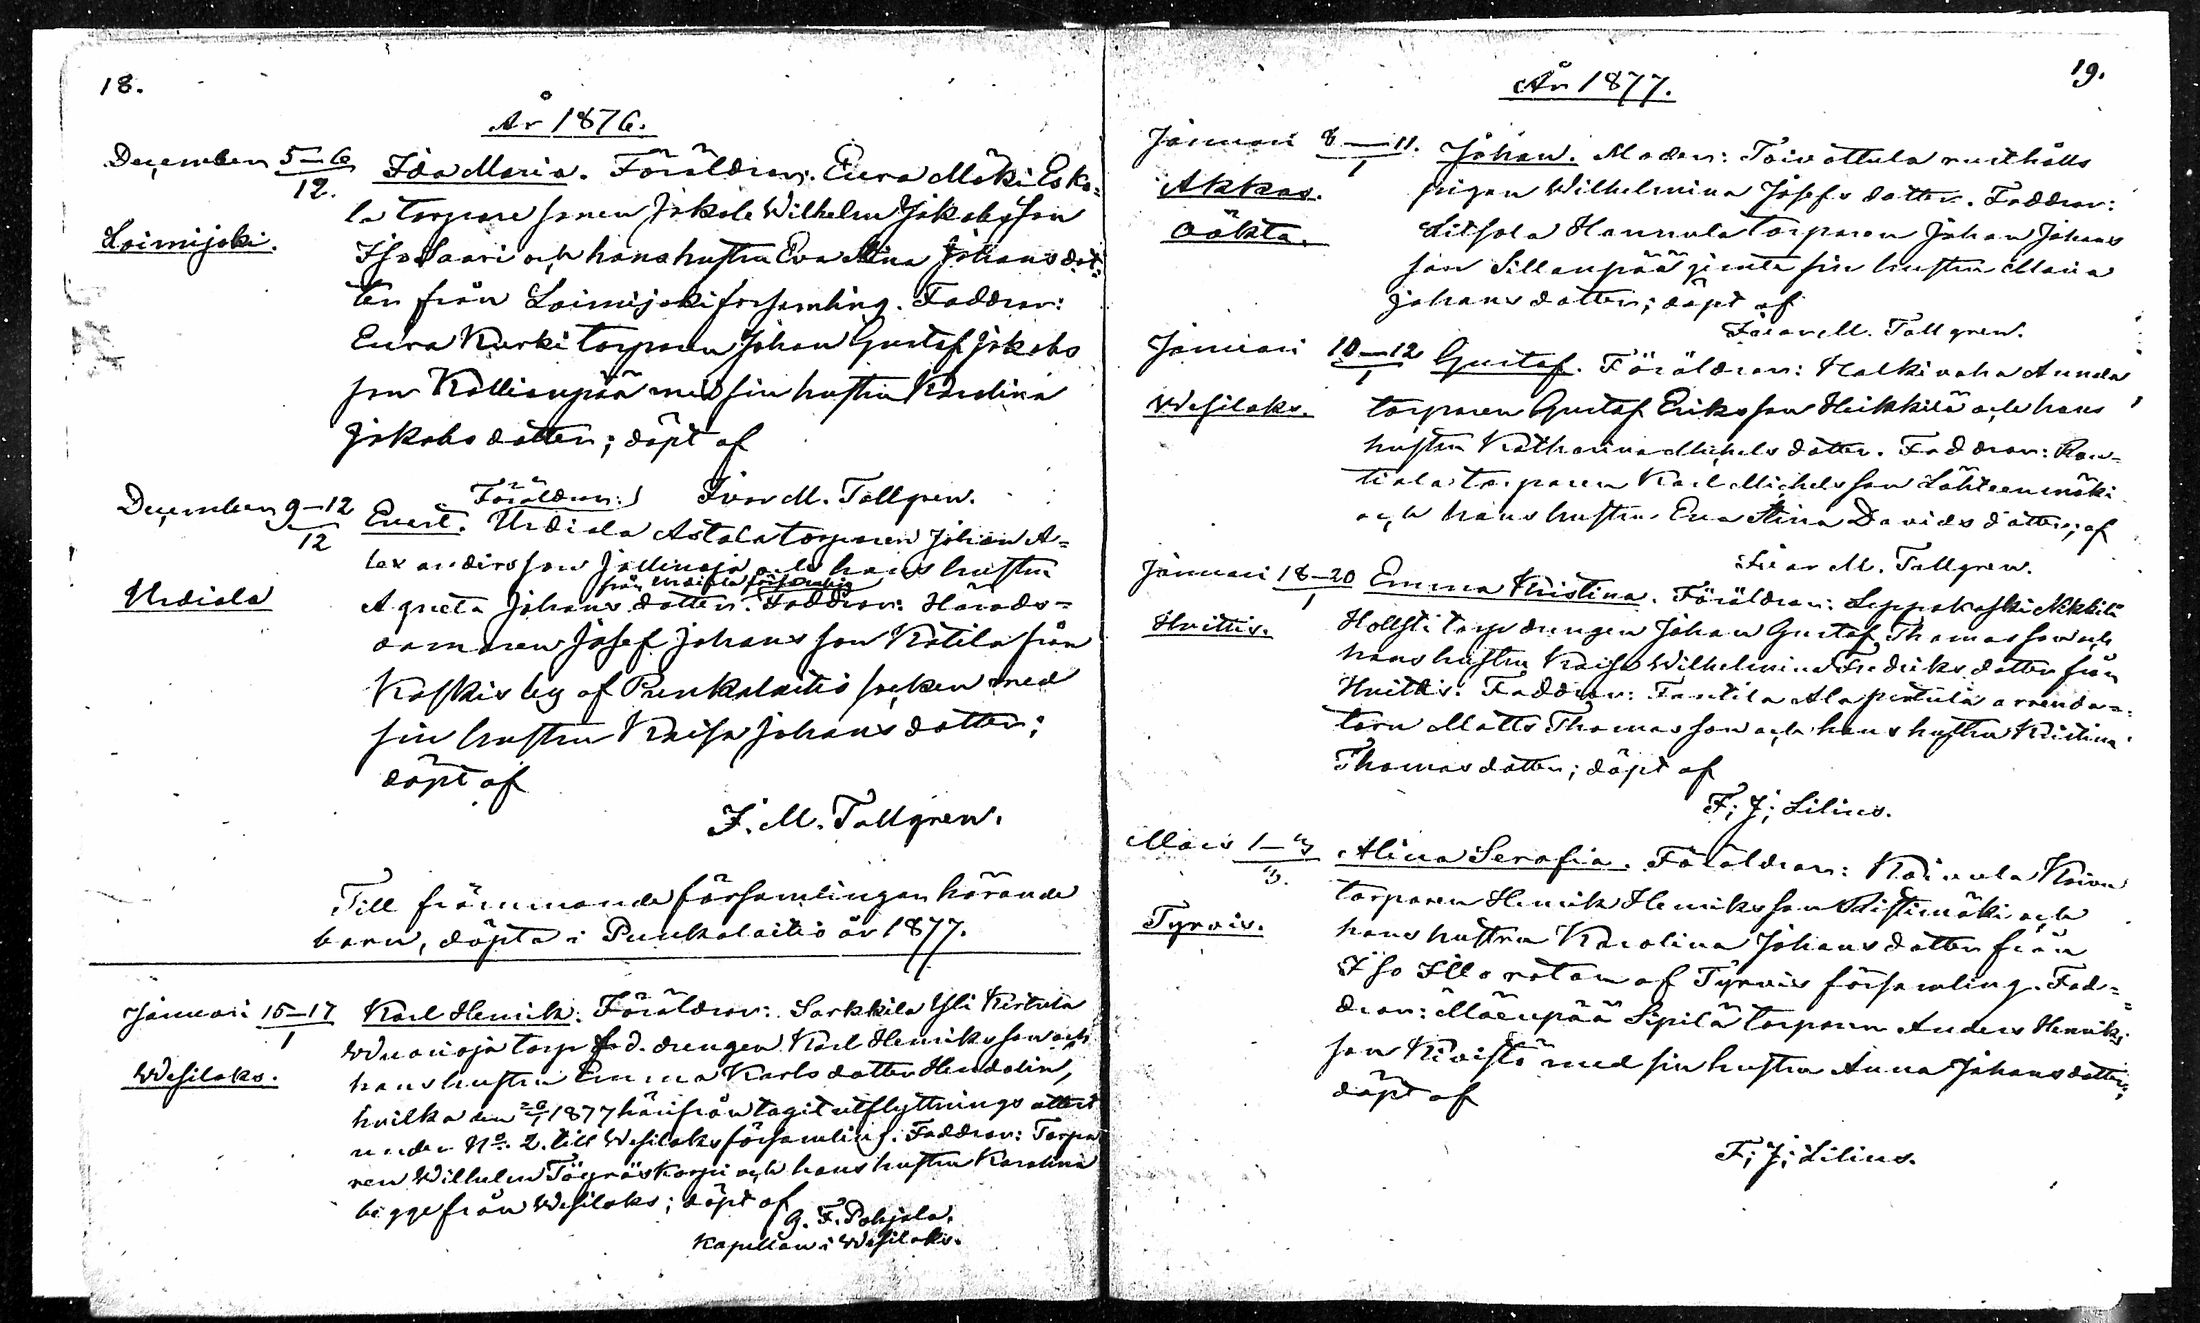 18.
År 1876.
December 5–6/12. Ida Maria. Föräldrar: Eura Mäki Esko-
la torpare sonen Jakob Wilhelm Jakobsson
Loimijoki.
Iso Saari och hans hustru Eva Stina Johansdot-
ter från Loimijoki församling. Faddrar:
Eura Kurki torparen Johan Gustaf Jakobs
son Kallionpää med sin hustru Karolina
Jakobsdotter; döpt af
Ivar M. Tallgren.
December 9–12/12 Evert. Föräldrar: Urdiala Astala torparen Johan A-
lexandersson Jallinoja och hans hustru
från Urdiala församling
Urdiala
Agneta Johansdotter. Faddrar: Härads-
domaren Josef Johansson Kotila från
Koskis by af Punkalaitio socken med
sin hustru Kaisa Johansdotter;
döpt af
I. M. Tallgren.
Till främmande församlingar hörande
barn, döpta i Punkalaitio år 1877.
Januari 15–17/1 Karl Henrik. Föräldrar: Sarkkila Yli Kirtula
Wuorioja torp f.d. drengen Karl Henriksson och
Wesilaks.
hans hustru Emma Karlsdotter Hendolin,
hvilka den 1877 härifrån tagit utflyttnings attest
under No. 2. till Wesilaks församling. Faddrar: Torpa
ren Wilhelm Töyräskorpi och hans hustru Karolina
begge från Wesilaks; döpt af
G. F. Pohjala.
Kapellan i Wesilaks.
19.
År 1877.
Januari 8–11./1 Johan. Moder: Toivottula rusthålls
Akkas.
pigan Wilhelmina Josefsdotter. Faddrar:
Oäkta.
Liitsola Hannula torparen Johan Johans
son Sillanpää jemte sin hustru Maria
Johansdotter; döpt af
Ivar M. Tallgren.
Januari 10–12/1 Gustaf. Föräldrar: Halkivaha Annala
Wesilaks.
torparen Gustaf Eriksson Heikkilä och hans
hustru Katharina Michelsdotter. Faddrar: Ran-
tiala torparen Karl Michelsson Lähteenmäki
och hans hustru Eva Stina Davidsdotter; af
Ivar M. Tallgren.
Januari 18–20/1 Emma Kristina. Föräldrar: Leppäkoski Nikkilä
Huittis.
Hollsti torp drengen Johan Gustaf Thomasson och
hans hustru Kaisa Wilhelmina Fredriksdotter från
Huittis. Faddrar: Fantila Alapirtula arrenda-
torn Matts Thomasson och hans hustru Kristina
Thomasdotter; döpt af
F; J; Lilius.
Mars 1–3/3. Alina Serafia. Föräldrar: Koivula Koivu
Tyrvis.
torparen Henrik Henriksson Ristimäki och
hans hustru Karolina Johansdotter från
Iso Illo rotan af Tyrvis församling. Fad-
drar: Mäenpää Sipilä torparen Anders Henriks
son Kivistö med sin hustru Anna Johansdotter;
döpt af
F; J; Lilius.